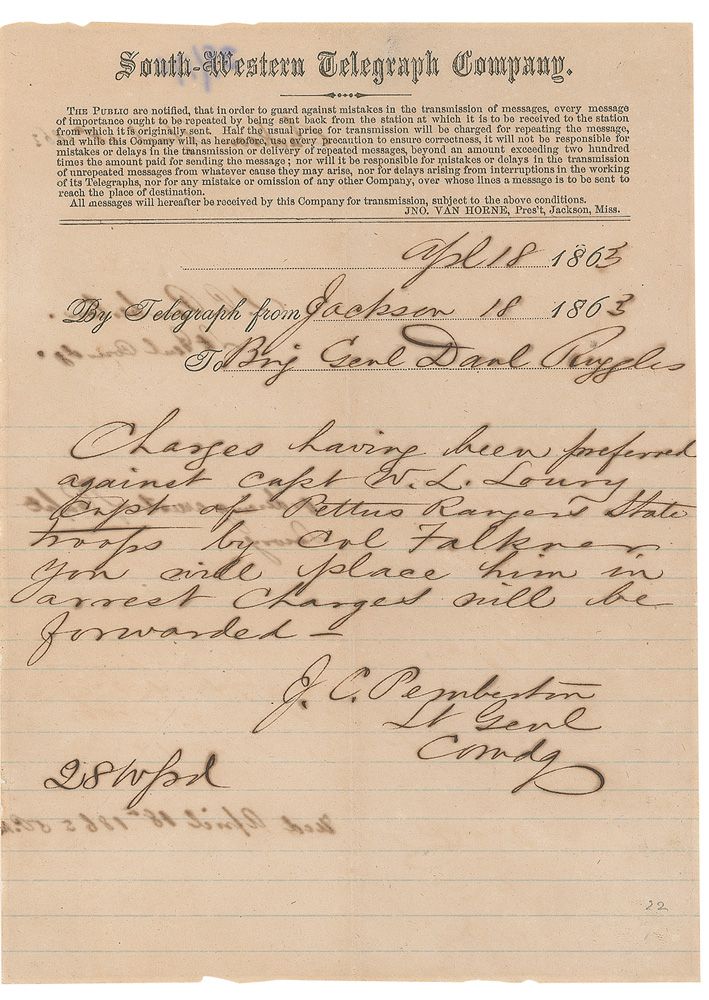 South-Western Telegraph Company.
THE PUBLIC are notified, that in order to guard against mistakes in the transmission of messages, every message
of importance ought to be repeated by being sent back from the station at which it is to be received to the station
from which it is originally sent. Half the usual price for transmission will be charged for repeating the message,
and while this Company will, as heretofore, use every precaution to ensure correctness, it will not be responsible for
mistakes or delays in the transmission or delivery of repeated messages, beyond an amount exceeding two hundred
times the amount paid for sending the message; nor will it be responsible for mistakes or delays in the transmission
of unrepeated messages from whatever cause they may arise, nor for delays arising from interruptions in the working
of its Telegraphs, nor for any mistake or omission of any other Company, over whose lines a message is to be sent to
reach the place of destination.
All messages will hereafter be received by this Company for transmission, subject to the above conditions.
JNO. VAN HORNE, Pres't, Jackson, Miss.
Apl 18 1863
By Telegraph from Jackson 18 1863
To Brig Genl Danl Ruggles
Charges having been preferred
against capt W. L. Loury
Capt of Pettus Rangers State
troops by Col Falkner
you will place him in
arrest Charges will be
forwarded —
J. C. Pemberton
Lt Genl
Comdg
28 W prd
22